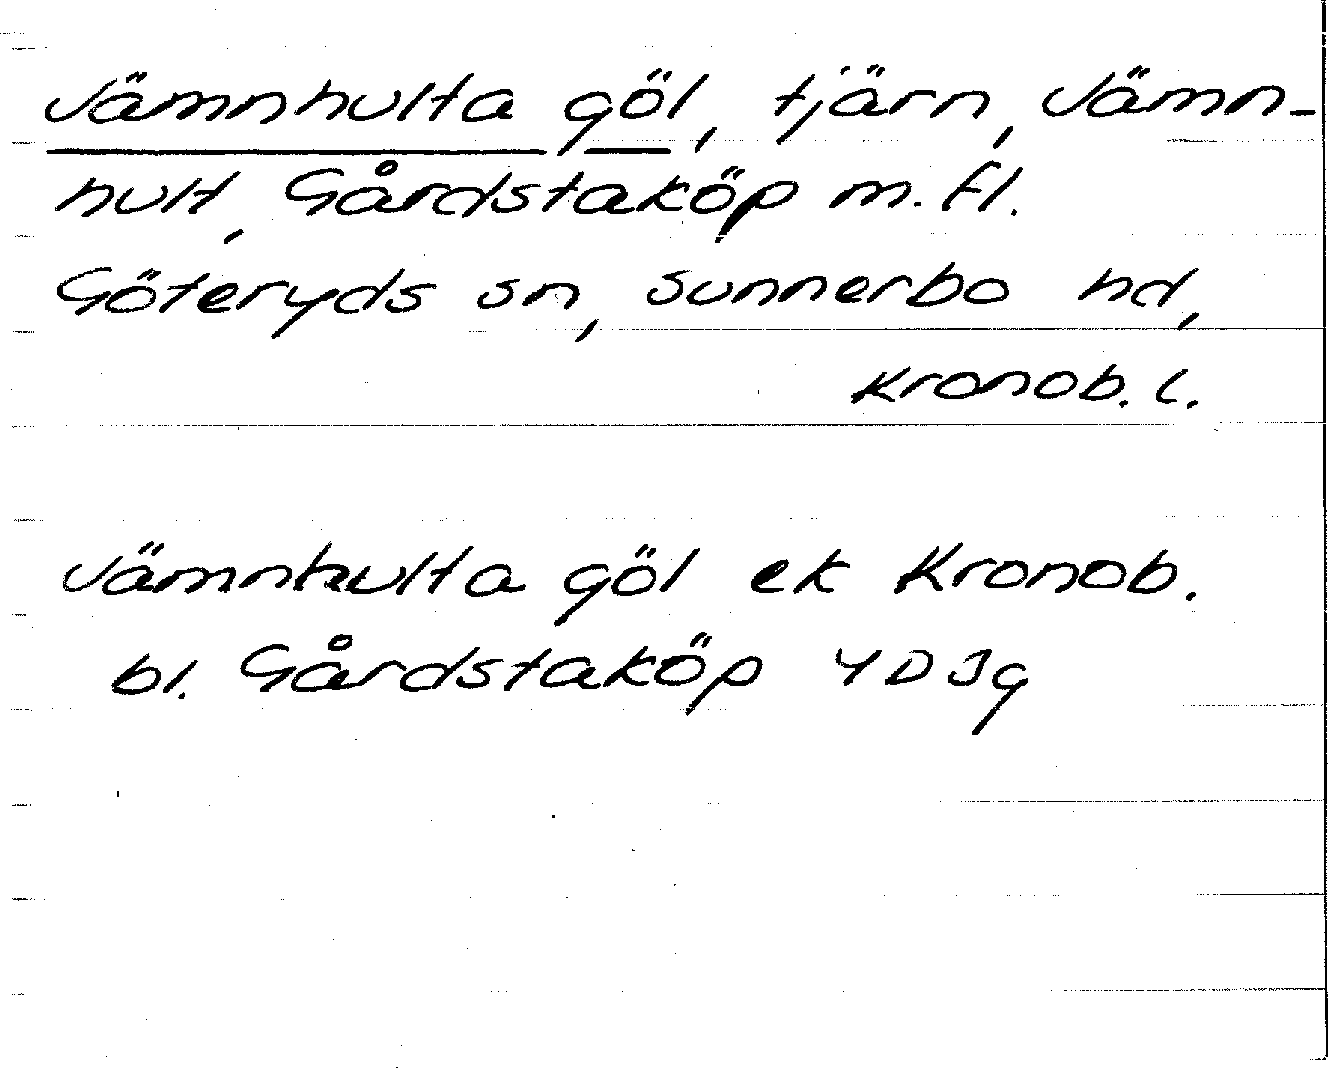 Jämnhulta göl, tjärn, Jämn-
hult, Gårdstaköp m. fl.
Göteryds sn, Sunnerbo hd,
Kronob. l.
Jämnhulta göl ek Kronob.
bl. Gårdstaköp 4D3g